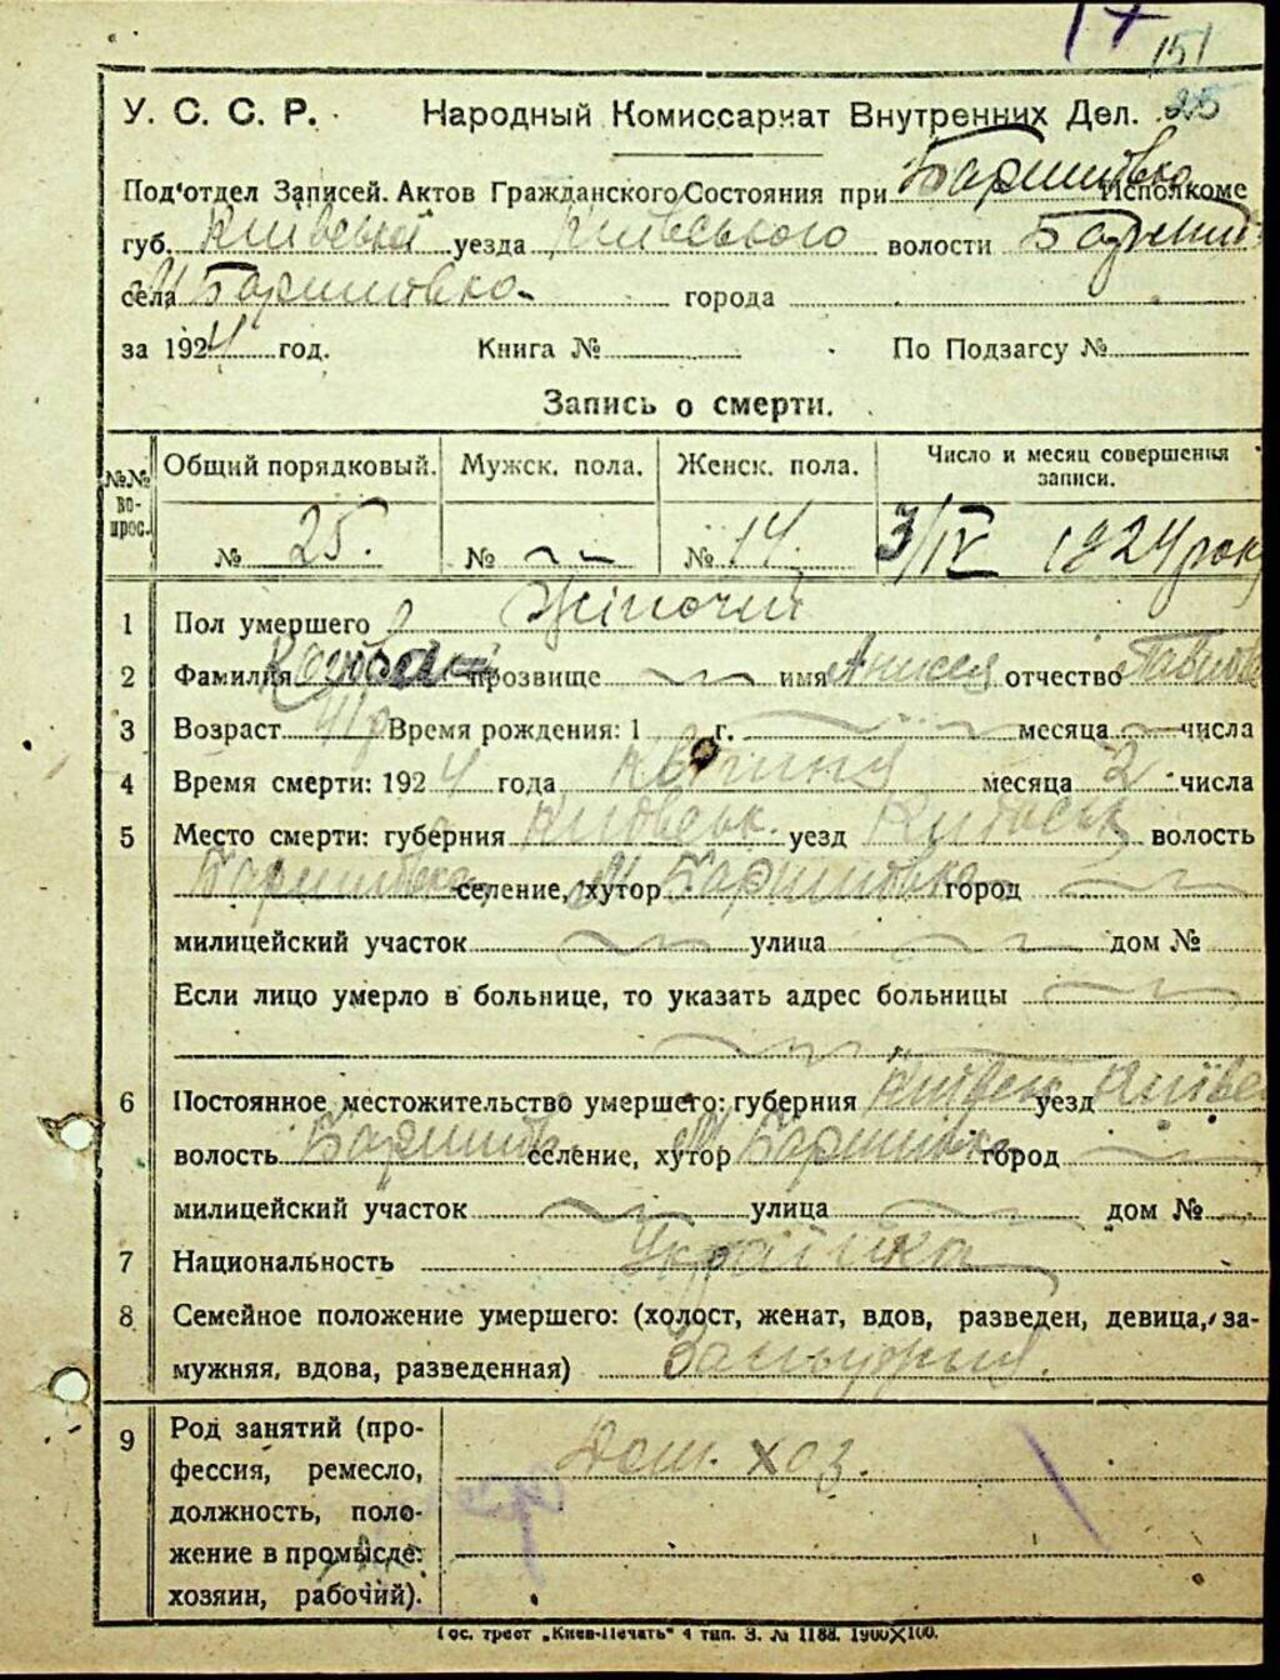 151
У. С. С. Р. Народный Комиссариат Внутренних Дел. 25
Под'отдел Записей. Актов Гражданского Состояния при Баришівка Исполкоме
губ. Київської уезда Київського волости
села М Баришовка города
за 1924 год. Книга № По Подзагсу №
Запись о смерти.
№№ вопрос. Общий порядковый. Мужск. пола. Женск. пола. Число и месяц совершения записи.
№ 25. № № 14. 3/IV 1924 року
1 Пол умершего Жіночий
2 Фамилия прозвище имя отчество
3 Возраст 41 р Время рождения: 1 г. месяца числа
4 Время смерти: 1924 года Квітня месяца 2 числа
5 Место смерти: губерния Київськ. уезд Київськ волость
Баришівка селение, хутор М Баришовка город
милицейский участок улица дом №
Если лицо умерло в больнице, то указать адрес больницы
6 Постоянное местожительство умершего: губерния Київськ уезд
волость Баришів селение, хутор М. Баришівка город
милицейский участок улица дом №
7 Национальность Українка
8 Семейное положение умершего: (холост, женат, вдов, разведен, девица, за-
мужняя, вдова, разведенная) Замужня.
9 Род занятий (про-
фессия, ремесло, Дом. хоз.
должность, поло-
жение в промысле:
хозяин, рабочий).
Гос. трест „Киев-Печать" 4 тип. З. № 1188. 1900×100.